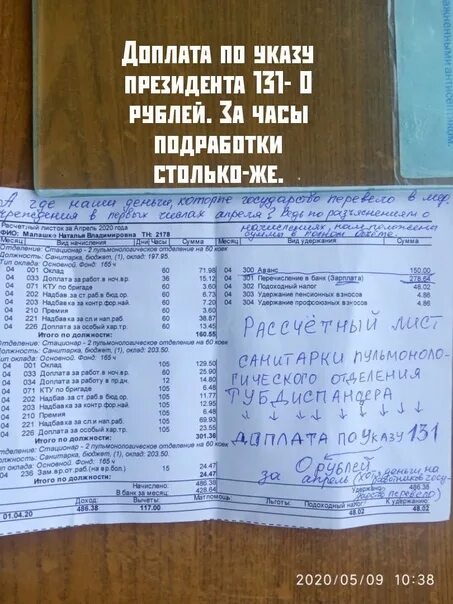 Доплата по указу
президента 131- 0
рублей. За часы
подработки
столько-же.
А где наши деньги, которые государство перевело в мед.
учреждения в первых числах апреля? Ведь по разъяснениям о
начислениях, нам положена
Расчетный листок за Апрель 2020 года
ФИО: Малашко Наталья Владимировна ТН: 2178
Месяц Вид начисления Дни Часы Сумма Месяц Вид удержания Сумма
Отделение: Стационар - 2 пульмонологическое отделение на 60 коек
Должность: Санитарка, бюджет, (1), оклад: 197.95.
Тип оклада: Основной. Фонд: 165 ч
04 001 Оклад 60 71.98
04 033 Доплата за работ в ноч.вр. 36 15.12
04 071 КТУ по бригаде 60 6.48
04 202 Надбав за ст.раб в бюд.ор. 60
04 203 Надбавка за контр.фор.най. 60
04 210 Премия 60
04 221 Надбавка за сл.и нап.раб. 60
04 226 Доплата за особый хар.тр. 60 13.45
Итого по должности: 160.55
04 300 Аванс 150.00
04 301 Перечисление в банк (Зарплата) 278.64
04 302 Подоходный налог 48.02
04 303 Удержание пенсионных взносов 4.86
04 304 Удержание профсоюзных взносов 4.86
Отделение: Стационар - 2 пульмонологическое отделение на 60 коек
Должность: Санитарка, бюджет, (2), оклад: 203.50.
Тип оклада: Основной. Фонд: 165 ч
04 001 Оклад 105 129.50
04 033 Доплата за работ в ноч.вр. 60
04 034 Доплата за работу в пр.дн. 12 14.80
04 071 КТУ по бригаде 105
04 202 Надбав за ст.раб в бюд.ор. 105
04 203 Надбавка за контр.фор.най. 105
04 210 Премия 105
04 221 Надбавка за сл.и нап.раб. 105
04 226 Доплата за особый хар.тр. 105 23.93
Итого по должности: 301.36
Отделение: Стационар - 2 пульмонологическое отделение на 60 коек
Должность: Санитарка, бюджет, (1), оклад: 203.50.
Тип оклада: Основной. Фонд: 165 ч
04 236 Зам.вр.от.раб.(на вр.бол.) 15 24.47
Итого по должности: 24.47
Начислено: 486.38
В банк за месяц: 428.64
Доход: Вычеты: Матпомощь Льготы: Подоходный налог К удержанию
01.04.20 486.38 117.00 48.02 48.02
Рассчётный лист
санитарки пульмоноло-
гического отделения
тубдиспансера
↓ ↓ ↓ ↓ ↓ ↓
Доплата по Указу 131
0 рублей
за апрель
деньги на
работников госу-
дарство перевело)
Удержано 486.38
2020/05/09 10:38